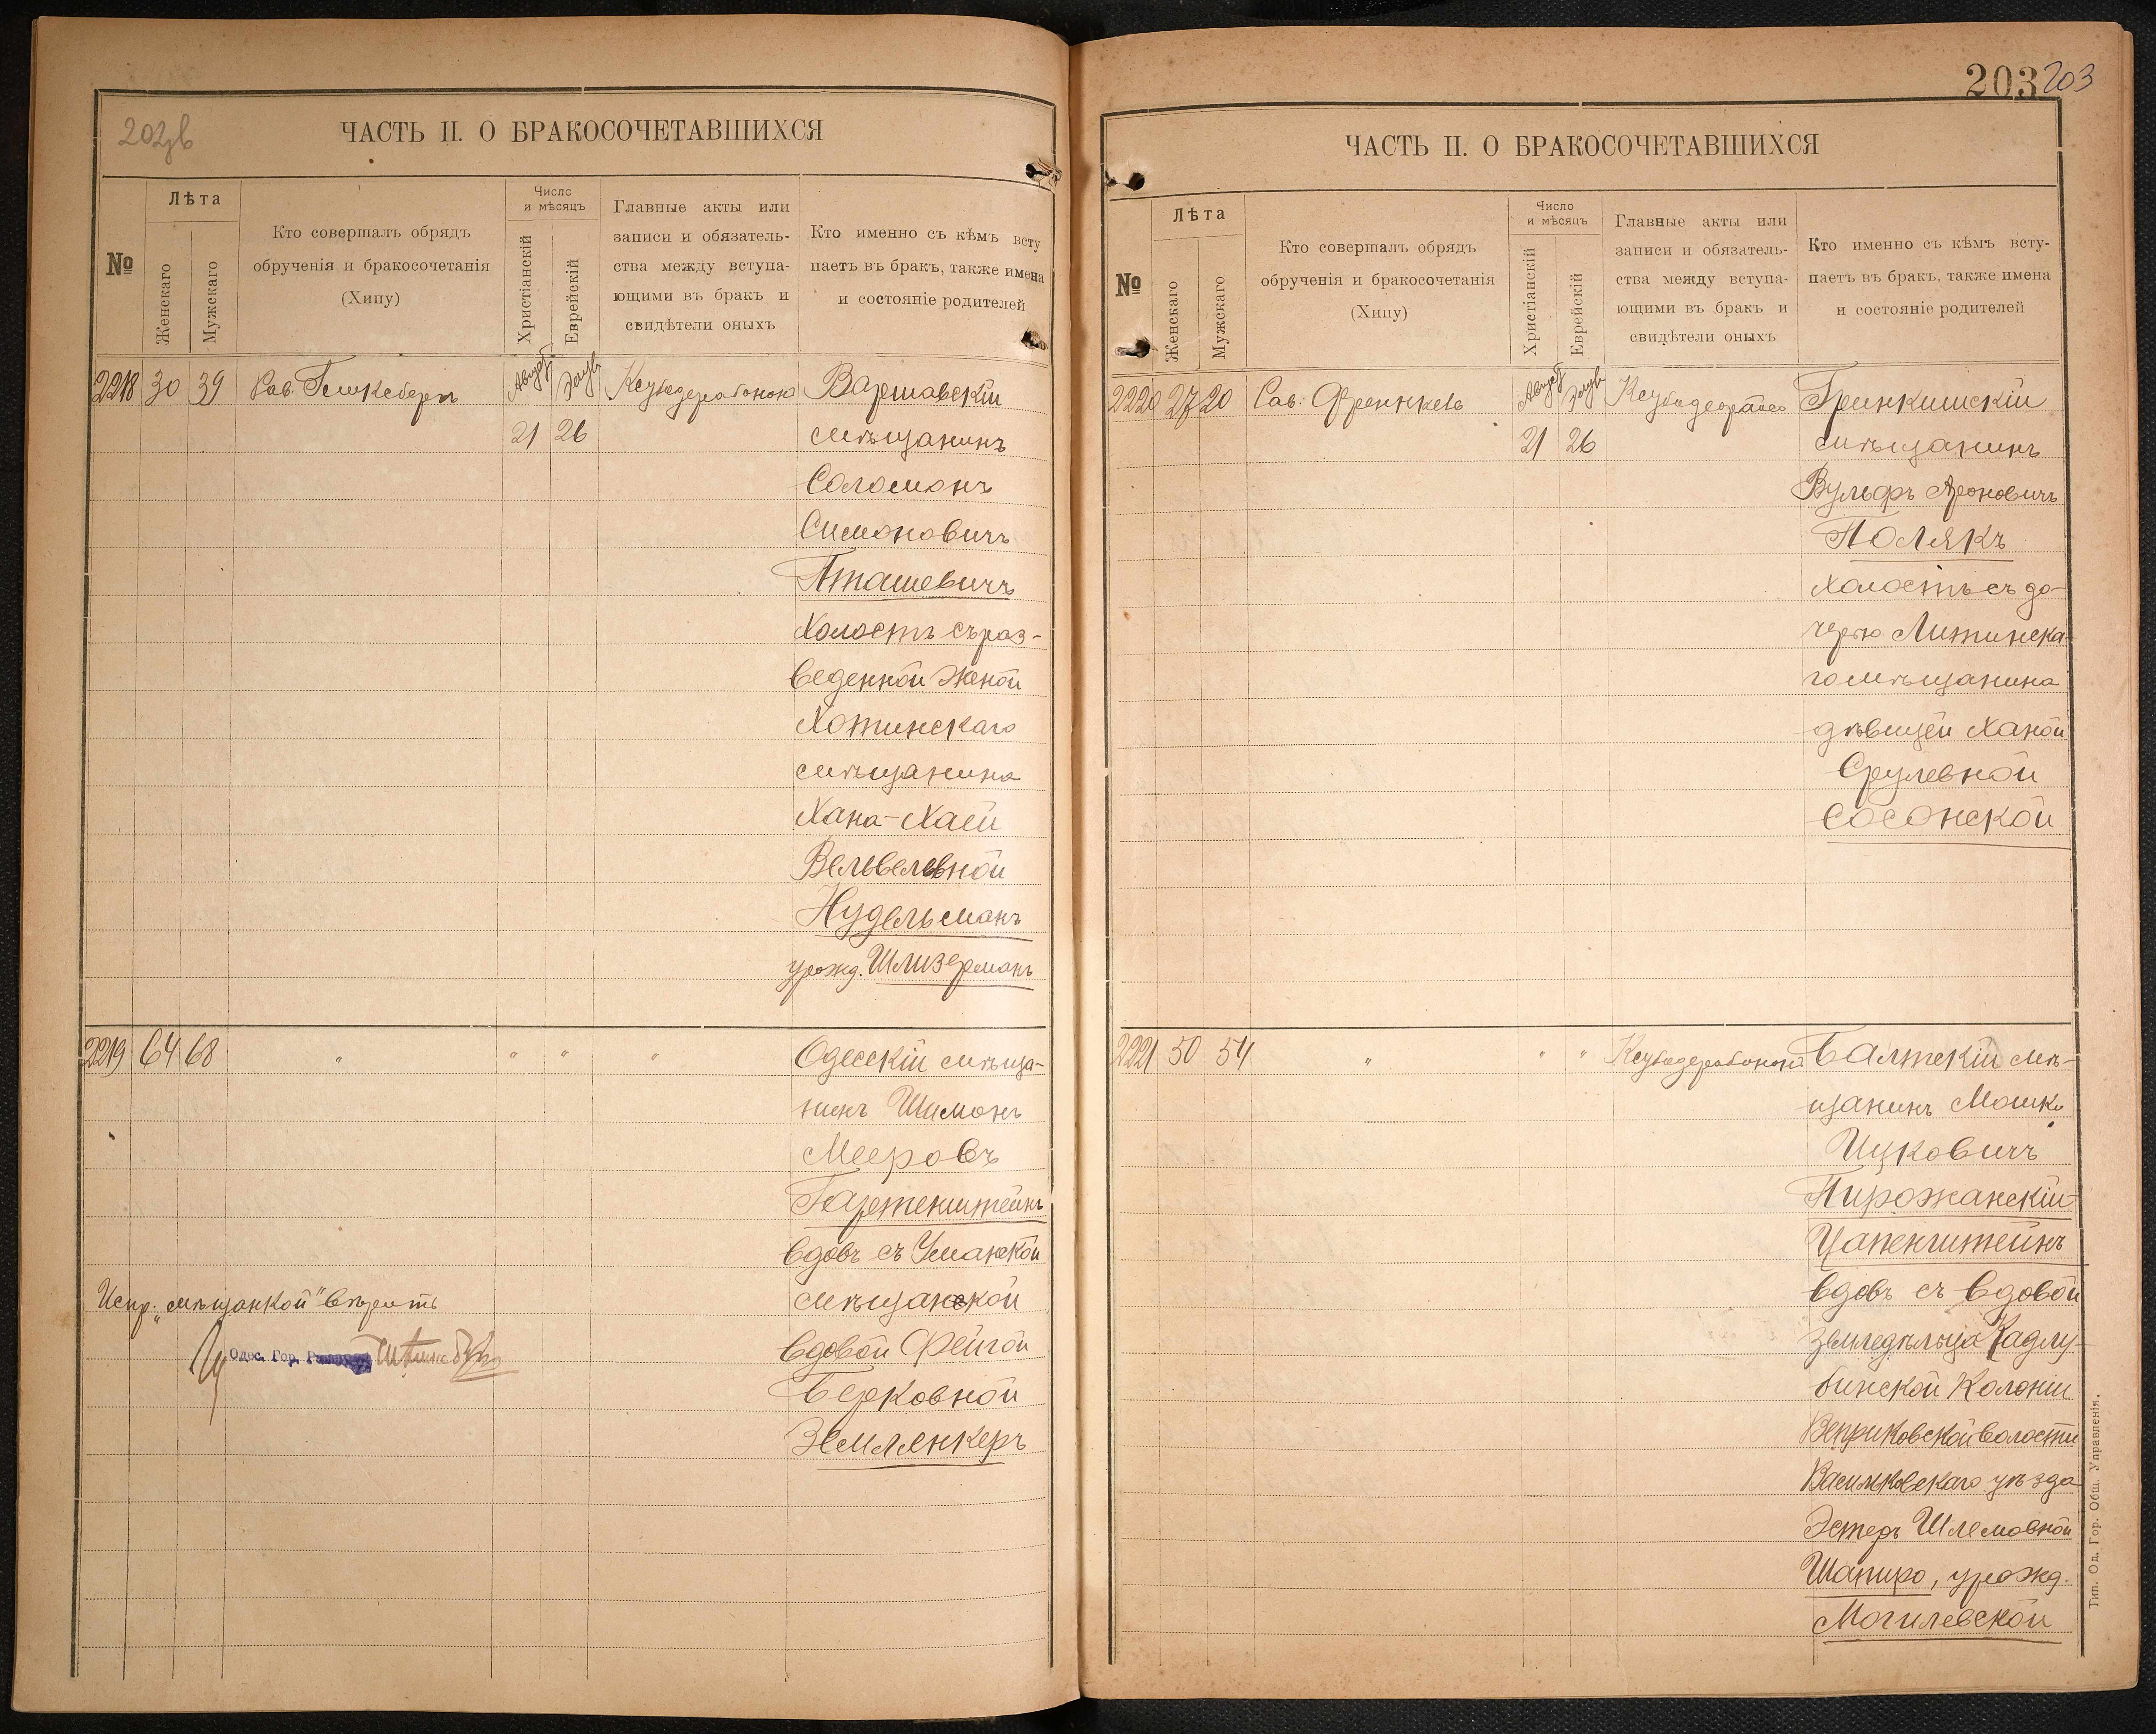 202об
ЧАСТЬ II. О БРАКОСОЧЕТАВШИХСЯ
№
Лѣта
Женскаго
Мужскаго
Кто совершалъ обрядъ
обрученія и бракосочетанія
(Хипу)
Число
и мѣсяцъ
Христіанскій
Еврейскій
Главные акты или
записи и обязатель-
ства между вступа-
ющими въ бракъ и
свидѣтели оныхъ
Кто именно съ кѣмъ всту
паетъ въ бракъ, также имена
и состояніе родителей
2218 30 39 Рав. Август Элулъ Варшавскій
21 26 мѣщанинъ
Соломонъ
Симоновичъ
Пташевичъ
холостъ съ раз-
веденной женой
Хотинскаго
мѣщанина
Хана-Хаей
Вельвелевной
Нудельманъ
урожд. Шлизерманъ
2219 64 68 " " " " Одесскій мѣща-
нинъ Шимонъ
Мееровъ
Гартенштейнъ
вдовъ съ Уманской
Испр. „мѣщанкой" вѣрить
мѣщанкой
Одес. Гор.
вдовой Фейгой
Берковной
Землянкеръ
203 203
ЧАСТЬ II. О БРАКОСОЧЕТАВШИХСЯ
№
Лѣта
Женскаго
Мужскаго
Кто совершалъ обрядъ
обрученія и бракосочетанія
(Хипу)
Число
и мѣсяцъ
Христіанскій
Еврейскій
Главные акты или
записи и обязатель-
ства между вступа-
ющими въ бракъ и
свидѣтели оныхъ
Кто именно съ кѣмъ всту-
паетъ въ бракъ, также имена
и состояніе родителей
2220 27 20 Рав. Френкель Август Элулъ Гринкишскій
21 26 мѣщанинъ
Вульфъ Ароновичъ
Полякъ
холостъ съ до-
черью Литинска-
го мѣщанина
дѣвицей Ханой
Срулевной
Сосонской
2221 50 54 " " " Балтскій мѣ-
щанинъ Мошко
Ицковичъ
Пирожанскій-
Цапенштейнъ
вдовъ съ вдовой
земледѣльца Кадлу-
бинской Колоніи
Веприковской волости
Васильковскаго уѣзда
Эстеръ Шлемовной
Шапиро, урожд.
Могилевской
Тип. Од. Гор. Общ. Управленія.